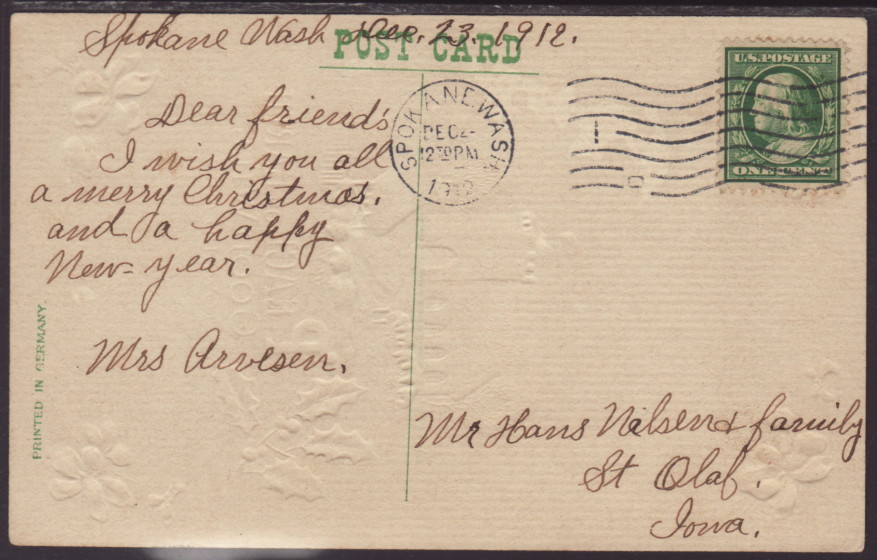 Spokane Wash Dec. 23. 1912.
POST CARD
Dear friends
I wish you all
a merry Christmas.
and a happy
New-year.
Mrs Arvesen.
SPOKANE, WASH
DEC
12 30 PM
1912
U.S. POSTAGE
ONE CENT
Mr Hans Nilsen & family
St Olaf.
Iowa.
PRINTED IN GERMANY.